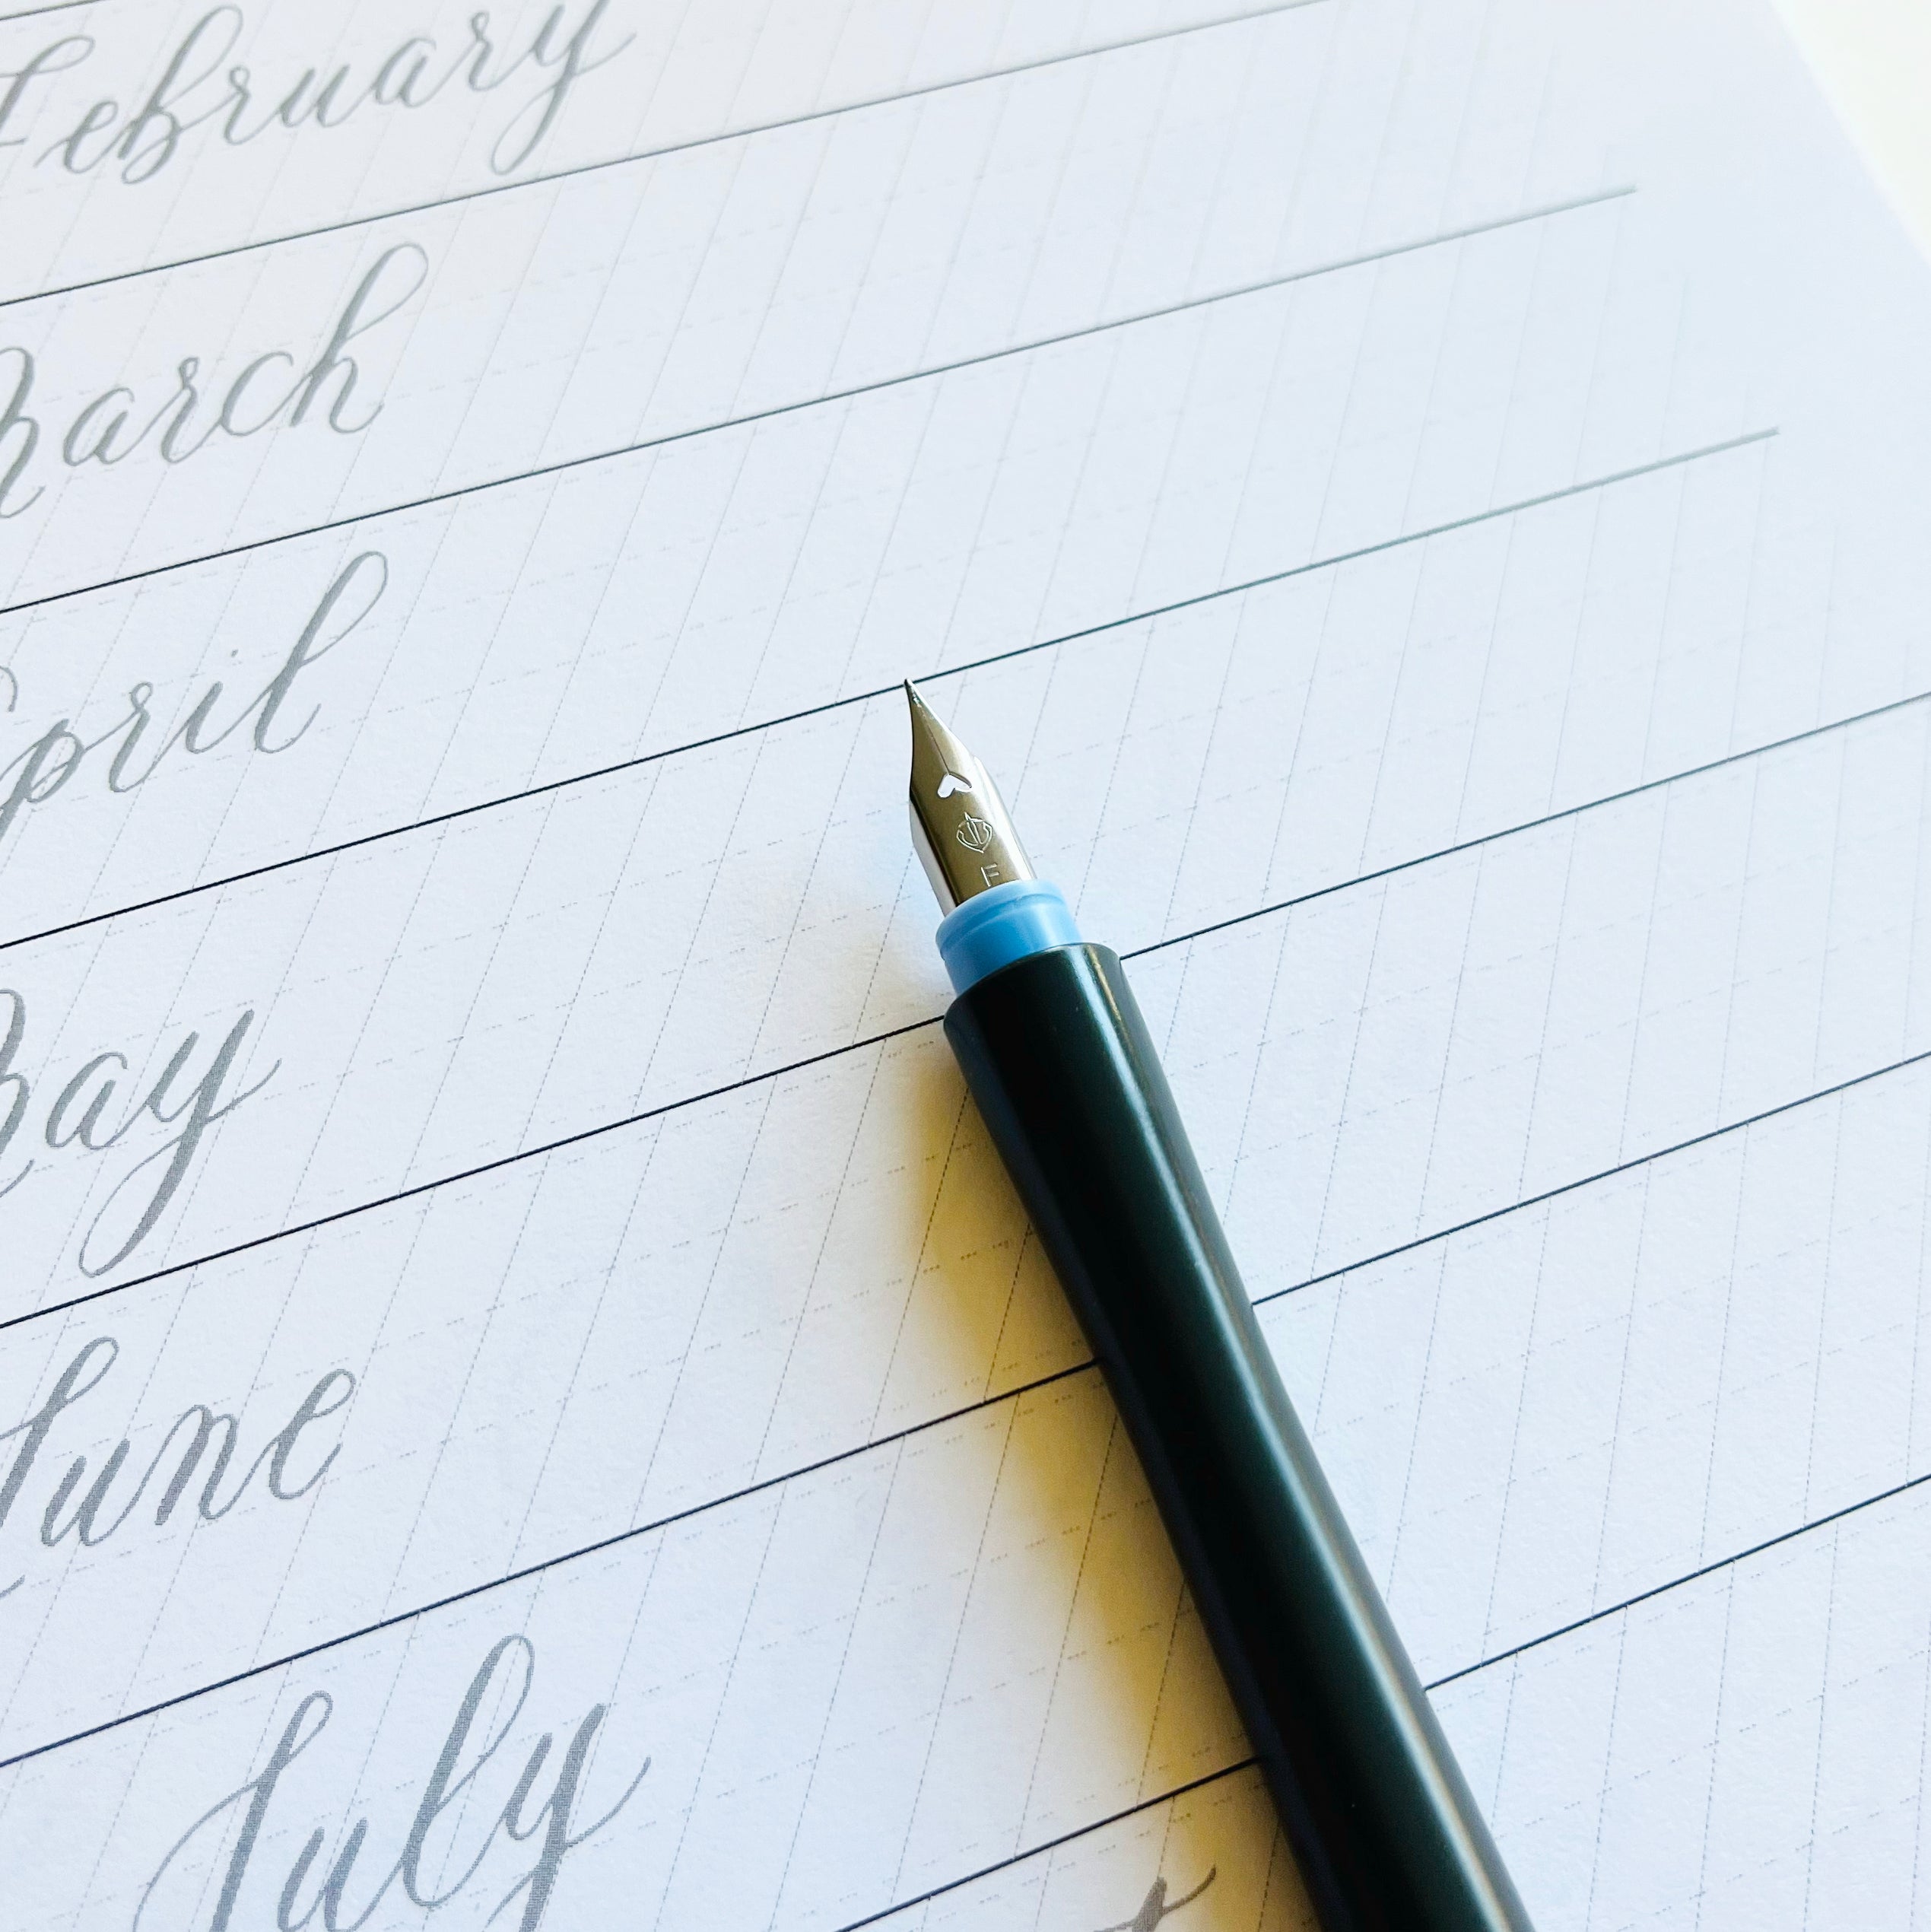 February
March
April
May
F
June
July